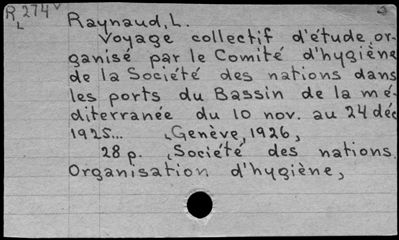 R 274
L
Raynaud, L.
Voyage collectif d'étude or-
ganisé par le Comité d'hygiène
de la Société des nations dans
les ports du Bassin de la mé-
diterranée du 10 nov. au 24 déc
1925... Genève, 1926,
28 p. Société des nations.
Organisation d'hygiène,